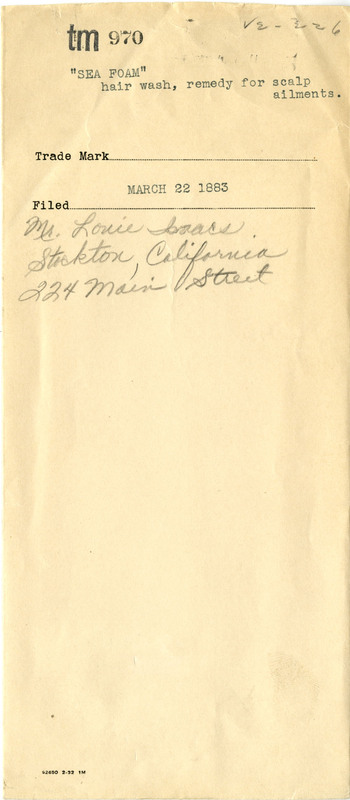 VE-326
tm 970
"SEA FOAM"
hair wash, remedy for scalp
ailments.
Trade Mark
MARCH 22 1883
Filed
Mr. Louie Isaacs.
Stockton, California
224 Main Street
92490 2-32 1M